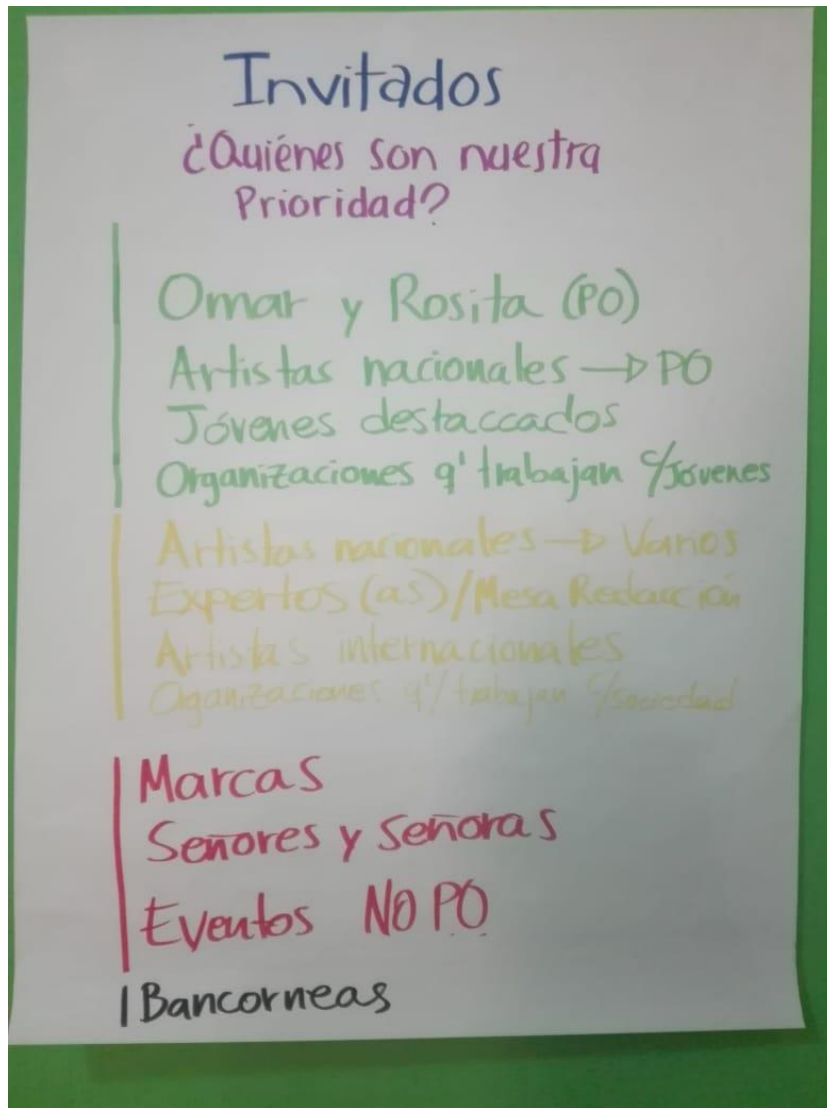 Invitados
¿Quiénes son nuestra
Prioridad?
Omar y Rosita (PO)
Artistas nacionales → PO
Jóvenes destaccados
Organizaciones q' trabajan c/Jóvenes
Artistas nacionales → Varios
Expertos (as)/Mesa Redacción
Artistas internacionales
Organizaciones q'/trabajan c/sociedad
Marcas
Señores y Señoras
Eventos NO PO
Bancorneas